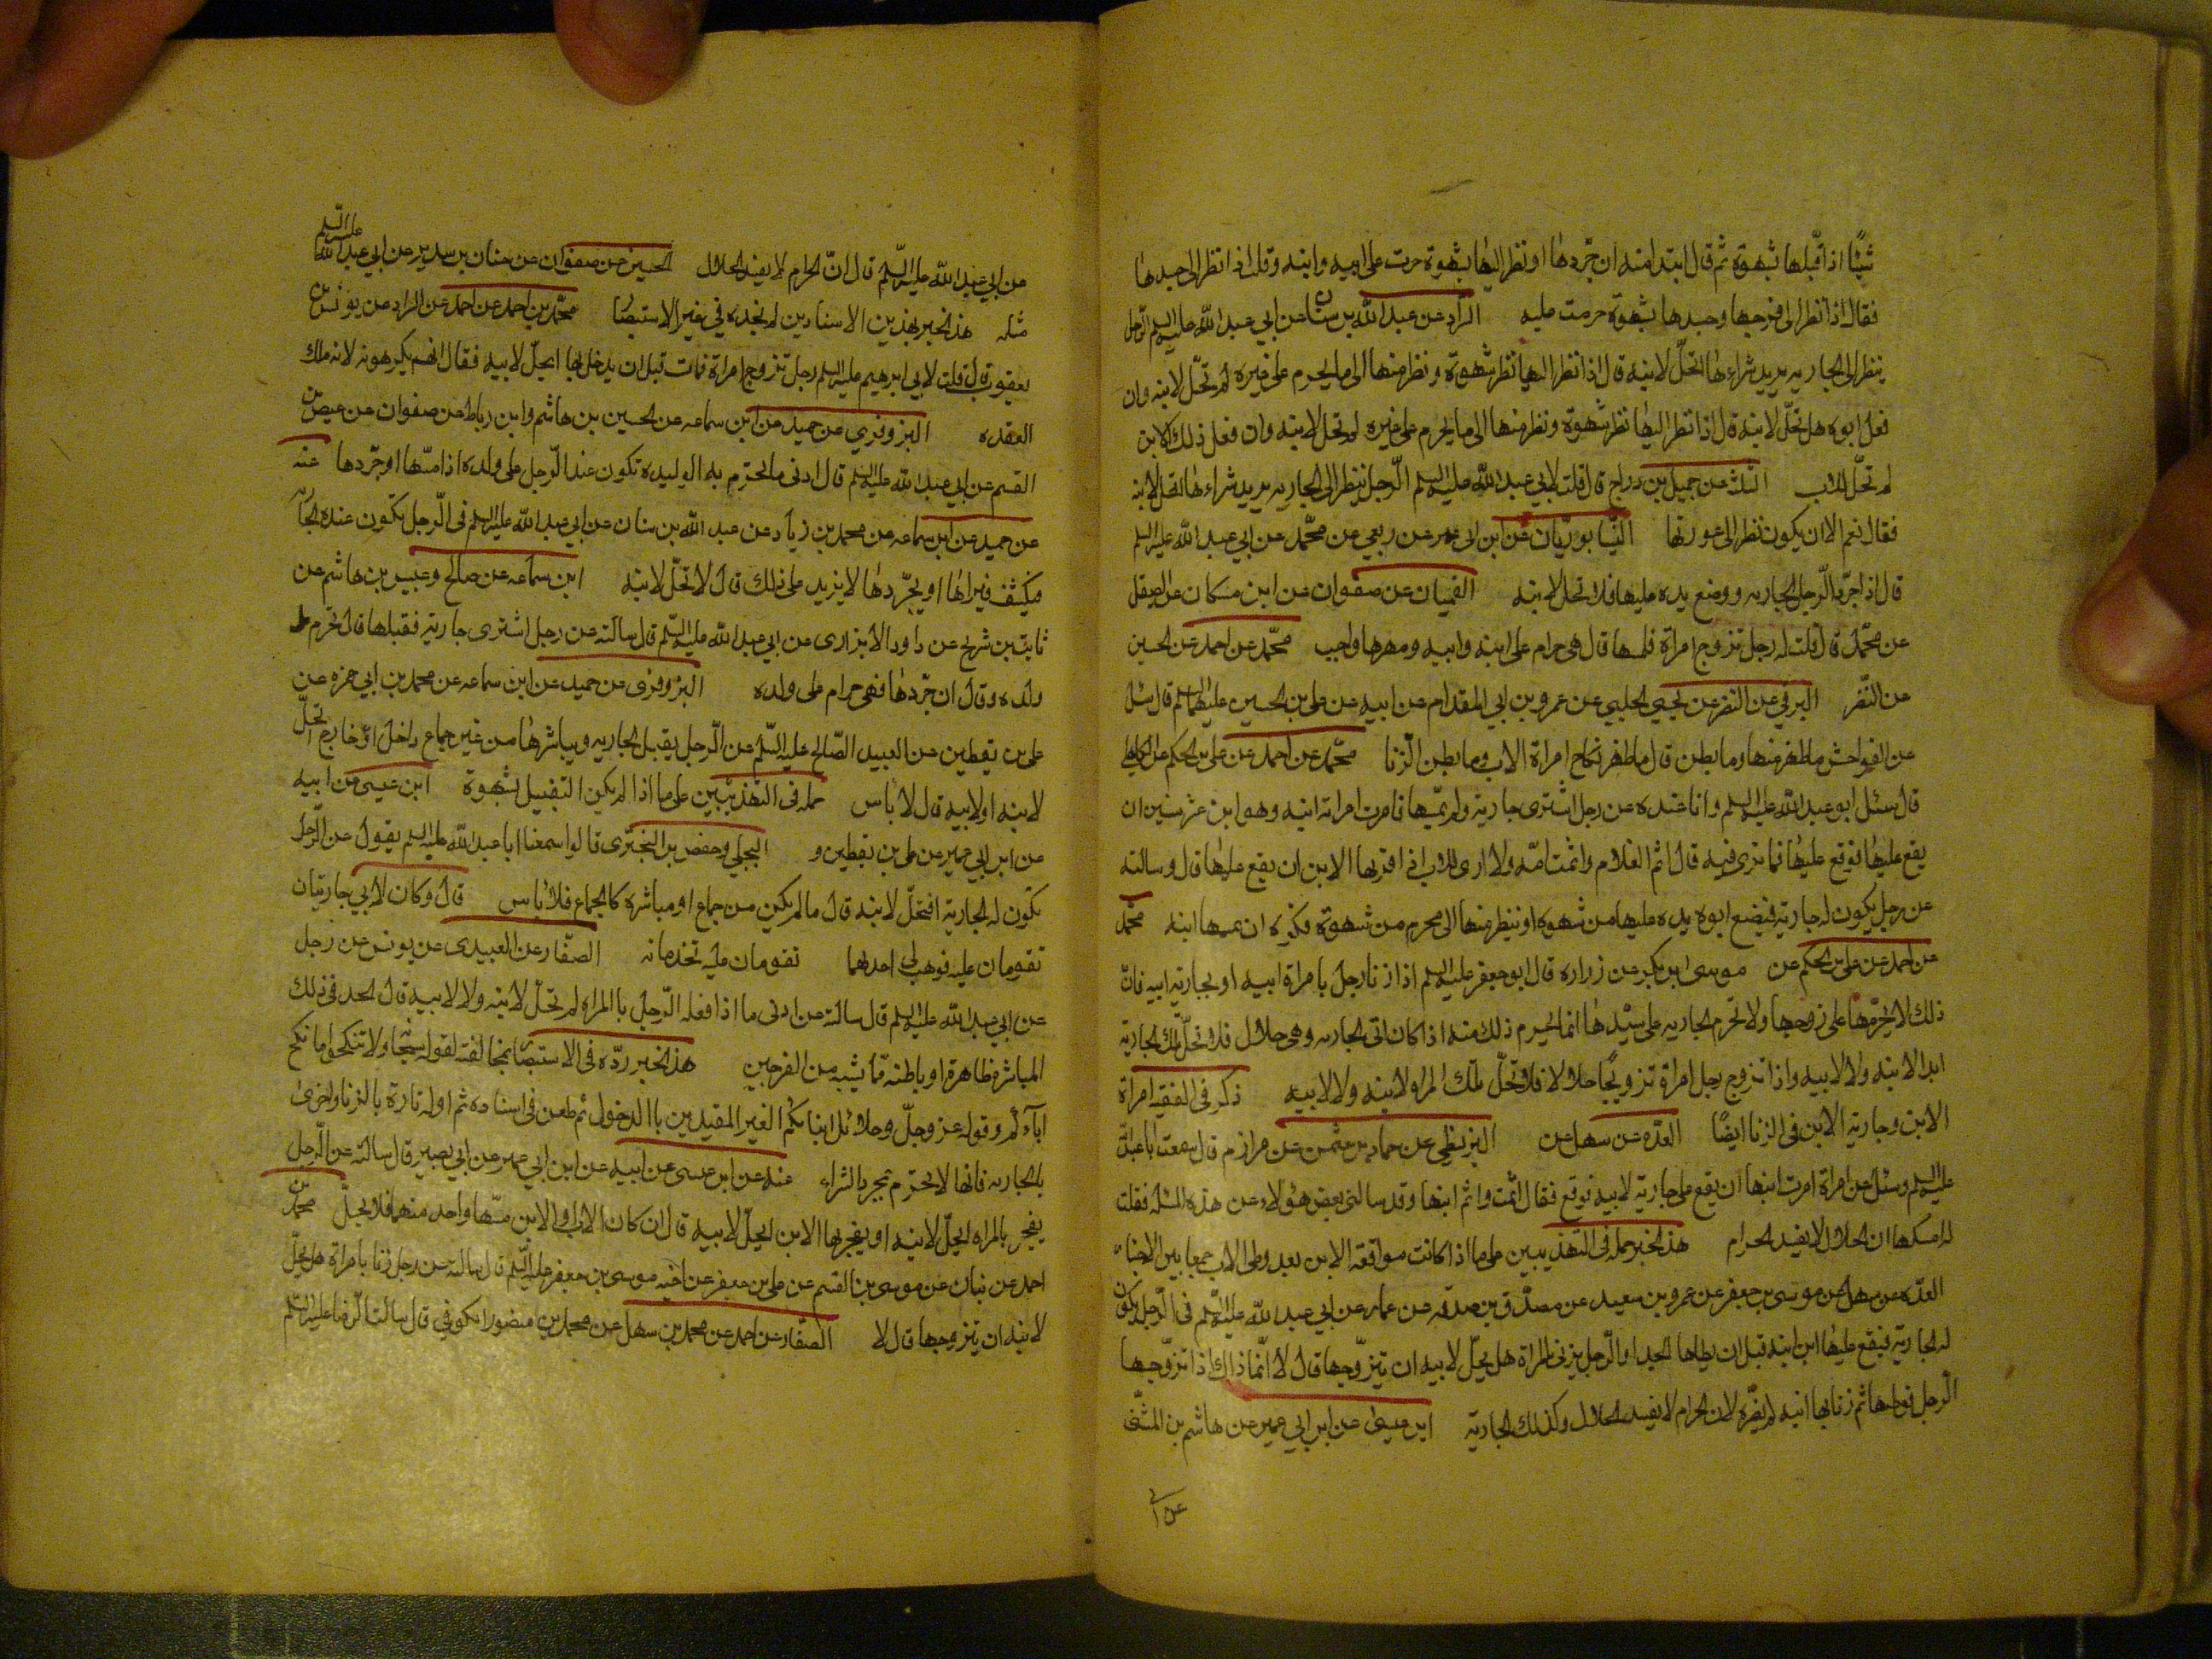 شيئا اذا قبلها بشهوة ثم قال ابتداء منه ان جردها او نظر اليها بشهوة حرمت على ابيه وابنه وقلت اذا نظر الى جسدها
فقال اذا نظر الى فرجها وجسدها بشهوة حرمت عليه الراد عن عبد الله بن سنان عن ابي عبد الله عليه السلم الرجل
ينظر الى الجارية يريد شراءها اتحل لابنه قال اذا نظر اليها نظر شهوة ونظر منها الى ما يحرم على غيره لم تحل لابنه وان
فعل ابوه هل تحل لابنه قال اذا نظر اليها نظر شهوة ونظر منها الى ما يحرم على غيره لم تحل لابنه وان فعل ذلك الابن
لم تحل للاب الثلثة عن جميل بن دراج قال قلت لابي عبد الله عليه السلم الرجل ينظر الى الجارية يريد شراءها اتحل لابنه
فقال نعم الا ان يكون نظر الى عورتها النيسابوريان عن ابن ابي عمير عن ربعي عن محمد عن ابي عبد الله عليه السلم
قال اذا جرد الرجل الجارية ووضع يده عليها فلا تحل لابنه القميان عن صفوان عن ابن مسكان عن الصيقل
عن محمد قال قلت له رجل تزوج امراة فلمسها قال هي حرام على ابنه وابيه ومهرها واجب محمد عن احمد عن الحسين
عن النضر البرقي عن النضر عن يحيى الحلبي عن عمرو بن ابي المقدام عن ابيه عن علي بن الحسين عليهما السلم قال سئل
عن الفواحش ما ظهر منها وما بطن قال ما ظهر نكاح امراة الاب وما بطن الزنا محمد عن احمد عن علي بن الحكم عن الكاهلي
قال سئل ابو عبد الله عليه السلم وانا عنده عن رجل اشترى جارية ولم يمسها فامرت امراته ابنه وهو ابن عشر سنين ان
يقع عليها فوقع عليها فما ترى فيه قال اثم الغلام واثمت امه ولا ارى للاب اذا قربها الابن ان يقع عليها قال وسالته
عن رجل يكون له جارية فيضع ابوه يده عليها من شهوة او ينظر منها الى محرم من شهوة فكره ان يمسها ابنه محمد
عن احمد عن علي بن الحكم عن موسى بن بكر عن زرارة قال ابو جعفر عليه السلم اذا زنا رجل بامراة ابيه او بجارية ابيه فان
ذلك لا يحرمها على زوجها ولا تحرم الجارية على سيدها انما يحرم ذلك منه اذا كان اتى الجارية وهي حلال فلا تحل تلك الجارية
ابدا لابنه ولا لابيه واذا تزوج رجل امراة تزويجا حلالا فلا تحل تلك المراة لابنه ولا لابيه ذكر في الفقيه امراة
الابن وجارية الابن في الزنا ايضا العدة عن سهل عن البزنطي عن حماد بن عثمن عن مرازم قال سمعت ابا عبد الله
عليه السلم وسئل عن امراة امرت ابنها ان يقع على جارية لابيه فوقع فقال اثمت واثم ابنها وقد سالني بعض هؤلاء عن هذه المسئلة فقلت
له امسكها ان الحلال لا يفسده الحرام هذا الخبر حمله في التهذيبين على ما اذا كانت مواقعة الابن بعد وطي الاب جمعا بين الاخبار
العدة عن سهل عن موسى بن جعفر عن عمرو بن سعيد عن مصدق بن صدقة عن عمار عن ابي عبد الله عليه السلم في الرجل يكون
له الجارية فيقع عليها ابن ابنه قبل ان يطاها الجد او الرجل يزني بالمراة هل يحل لابيه ان يتزوجها قال لا انما ذلك اذا تزوجها
الرجل فوطئها ثم زنا بها ابنه لم يضره لان الحرام لا يفسد الحلال وكذلك الجارية ابن عيسى عن ابن ابي عمير عن هاشم بن المثنى
عن ا
من ابي عبد الله عليه السلم قال ان الحرام لا يفسد الحلال الحسين عن صفوان عن حنان بن سدير عن ابي عبد الله عليه السلم
مثله هذا الخبر بهذين الاسنادين لم نجده في غير الاستبصار محمد بن احمد عن احمد عن الراد عن يونس بن
يعقوب قال قلت لابي ابرهيم عليه السلم رجل تزوج امراة فمات قبل ان يدخل بها ايحل لابيه فقال انهم يكرهونه لانه ملك
العقدة البزوفري عن حميد عن ابن سماعه عن الحسين بن هاشم وابن رباط عن صفوان عن عيص بن
القسم عن ابي عبد الله عليه السلم قال ادنى ما تحرم به الوليدة تكون عند الرجل على ولده اذا مسها او جردها عنه
عن حميد عن ابن سماعه عن محمد بن زياد عن عبد الله بن سنان عن ابي عبد الله عليه السلم في الرجل تكون عنده الجارية
فيكشف فيراها او يجردها لا يزيد على ذلك قال لا تحل لابنه ابن سماعه عن صالح وعبيس بن هاشم عن
ثابت بن شريح عن داود الابزاري عن ابي عبد الله عليه السلم قال سالته عن رجل اشترى جارية فقبلها قال تحرم على
ولده وقال ان جردها فهي حرام على ولده البزوفري عن حميد عن ابن سماعه عن محمد بن ابي حمزه عن
علي بن يقطين عن العبد الصالح عليه السلم عن الرجل يقبل الجارية ويباشرها من غير جماع داخل او خارج اتحل
لابنه او لابيه قال لا باس حمله في التهذيبين على ما اذا لم يكن التقبيل لشهوة ابن عيسى عن ابيه
عن ابن ابي عمير عن علي بن يقطين و البجلي وحفص بن البختري قالوا سمعنا ابا عبد الله عليه السلم يقول عن الرجل
تكون له الجارية افتحل لابنه قال ما لم يكن من جماع او مباشرة كالجماع فلا باس قال وكان لابي جاريتان
تقومان عليه فوهب لي احدهما تقومان عليه تخدمانه الصفار عن العبيدي عن يونس عن رجل
عن ابي عبد الله عليه السلم قال سالته عن ادنى ما اذا فعله الرجل بالمراه لم تحل لابنه ولا لابيه قال الحد في ذلك
المباشرة ظاهرة او باطنة مما يشبه مس الفرجين هذا الخبر رده في الاستبصار لمخالفته لقوله سبحانه ولا تنكحوا ما نكح
آباؤكم وقوله عز وجل وحلائل ابنائكم الغير المقيدين بالدخول ثم طعن في اسناده ثم اوله تارة بالزنا واخرى
بالجارية فانها لا تحرم بمجرد الشراء عنه عن ابن عيسى عن ابيه عن ابن ابي عمير عن ابي بصير قال سالته عن الرجل
يفجر بالمراه اتحل لابنه او يفجر بها الابن اتحل لابيه قال ان كان الاب او الابن مسها واحد منهما فلا تحل محمد بن
احمد عن بنان عن موسى بن القسم عن علي بن جعفر عن اخيه موسى بن جعفر عليه السلم قال سالته عن رجل زنا بامراة هل يحل
لابنه ان يتزوجها قال لا الصفار عن احمد عن محمد بن سهل عن محمد بن منصور الكوفي قال سالت الرضا عليه السلم